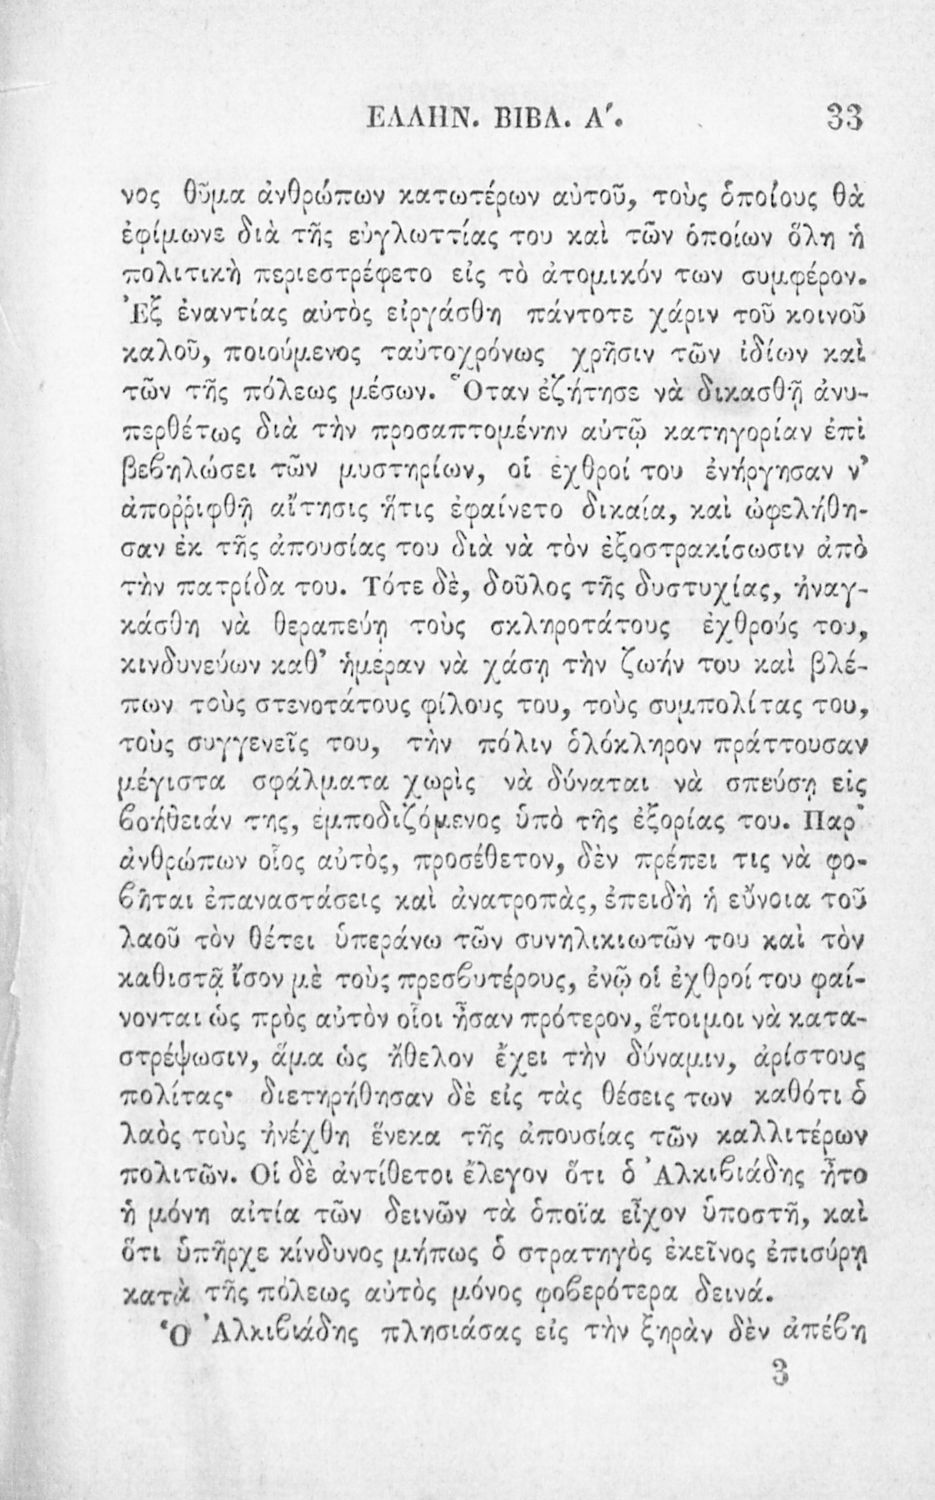 ΕΛΛΗΝ. ΒΙΒΛ. Α΄. 33
νος θῦμα ἀνθρώπων κατωτέρων αὐτοῦ, τοὺς ὁποίους θὰ
ἐφίμωνε διὰ τῆς εὐγλωττίας του καὶ τῶν ὁποίων ὅλη ἡ
πολιτικὴ περιεστρέφετο εἰς τὸ ἀτομικόν των συμφέρον.
Ἐξ ἐναντίας αὐτὸς εἰργάσθη πάντοτε χάριν τοῦ κοινοῦ
καλοῦ, ποιούμενος ταὐτοχρόνως χρῆσιν τῶν ἰδίων καὶ
τῶν τῆς πόλεως μέσων. Ὅταν ἐζήτησε νὰ δικασθῇ ἀνυ-
περθέτως διὰ τὴν προσαπτομένην αὐτῷ κατηγορίαν ἐπὶ
βεϐηλώσει τῶν μυστηρίων, οἱ ἐχθροί του ἐνήργησαν ν’
ἀποῤῥιφθῇ αἴτησις ἥτις ἐφαίνετο δικαία, καὶ ὠφελήθη-
σαν ἐκ τῆς ἀπουσίας του διὰ νὰ τὸν ἐξοστρακίσωσιν ἀπὸ
τὴν πατρίδα του. Τότε δὲ, δοῦλος τῆς δυστυχίας, ἠναγ-
κάσθη νὰ θεραπεύῃ τοὺς σκληροτάτους ἐχθρούς του,
κινδυνεύων καθ’ ἡμέραν νὰ χάσῃ τὴν ζωήν του καὶ βλέ-
πων τοὺς στενοτάτους φίλους του, τοὺς συμπολίτας του,
τοὺς συγγενεῖς του, τὴν πόλιν ὁλόκληρον πράττουσαν
μέγιστα σφάλματα χωρὶς νὰ δύναται νὰ σπεύσῃ εἰς
ϐοήθειάν της, ἐμποδιζόμενος ὑπὸ τῆς ἐξορίας του. Παρ’
ἀνθρώπων οἷος αὐτὸς, προσέθετον, δὲν πρέπει τις νὰ φο-
ϐῆται ἐπαναστάσεις καὶ ἀνατροπὰς, ἐπειδὴ ἡ εὔνοια τοῦ
λαοῦ τὸν θέτει ὑπεράνω τῶν συνηλικιωτῶν του καὶ τὸν
καθιστᾷ ἴσον μὲ τοὺς πρεσϐυτέρους, ἐνῷ οἱ ἐχθροί του φαί-
νονται ὡς πρὸς αὐτὸν οἷοι ἦσαν πρότερον, ἕτοιμοι νὰ κατα-
στρέψωσιν, ἅμα ὡς ἤθελον ἔχει τὴν δύναμιν, ἀρίστους
πολίτας· διετηρήθησαν δὲ εἰς τὰς θέσεις των καθότι ὁ
λαὸς τοὺς ἠνέχθη ἕνεκα τῆς ἀπουσίας τῶν καλλιτέρων
πολιτῶν. Οἱ δὲ ἀντίθετοι ἔλεγον ὅτι ὁ Ἀλκιϐιάδης ἦτο
ἡ μόνη αἰτία τῶν δεινῶν τὰ ὁποῖα εἶχον ὑποστῆ, καὶ
ὅτι ὑπῆρχε κίνδυνος μήπως ὁ στρατηγὸς ἐκεῖνος ἐπισύρῃ
κατὰ τῆς πόλεως αὐτὸς μόνος φοϐερότερα δεινά.
Ὁ Ἀλκιϐιάδης πλησιάσας εἰς τὴν ξηρὰν δὲν ἀπέϐη
3